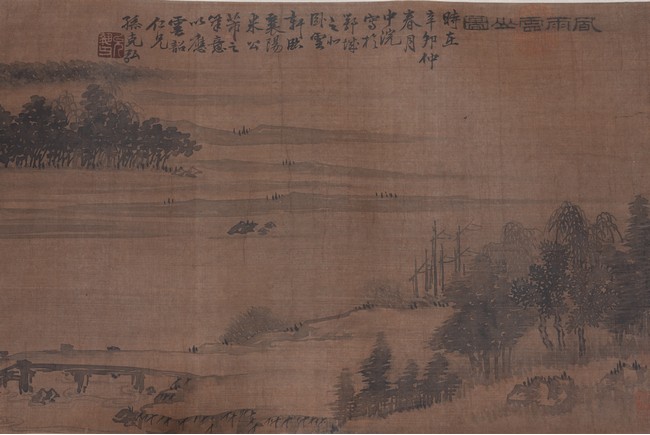 風雨雲山圖
時在
辛卯仲
春月
中浣
寫於
之北
臥雲
軒
襄陽
米公
芾之
筆意
以應
雲韶
仁兄
孫克弘